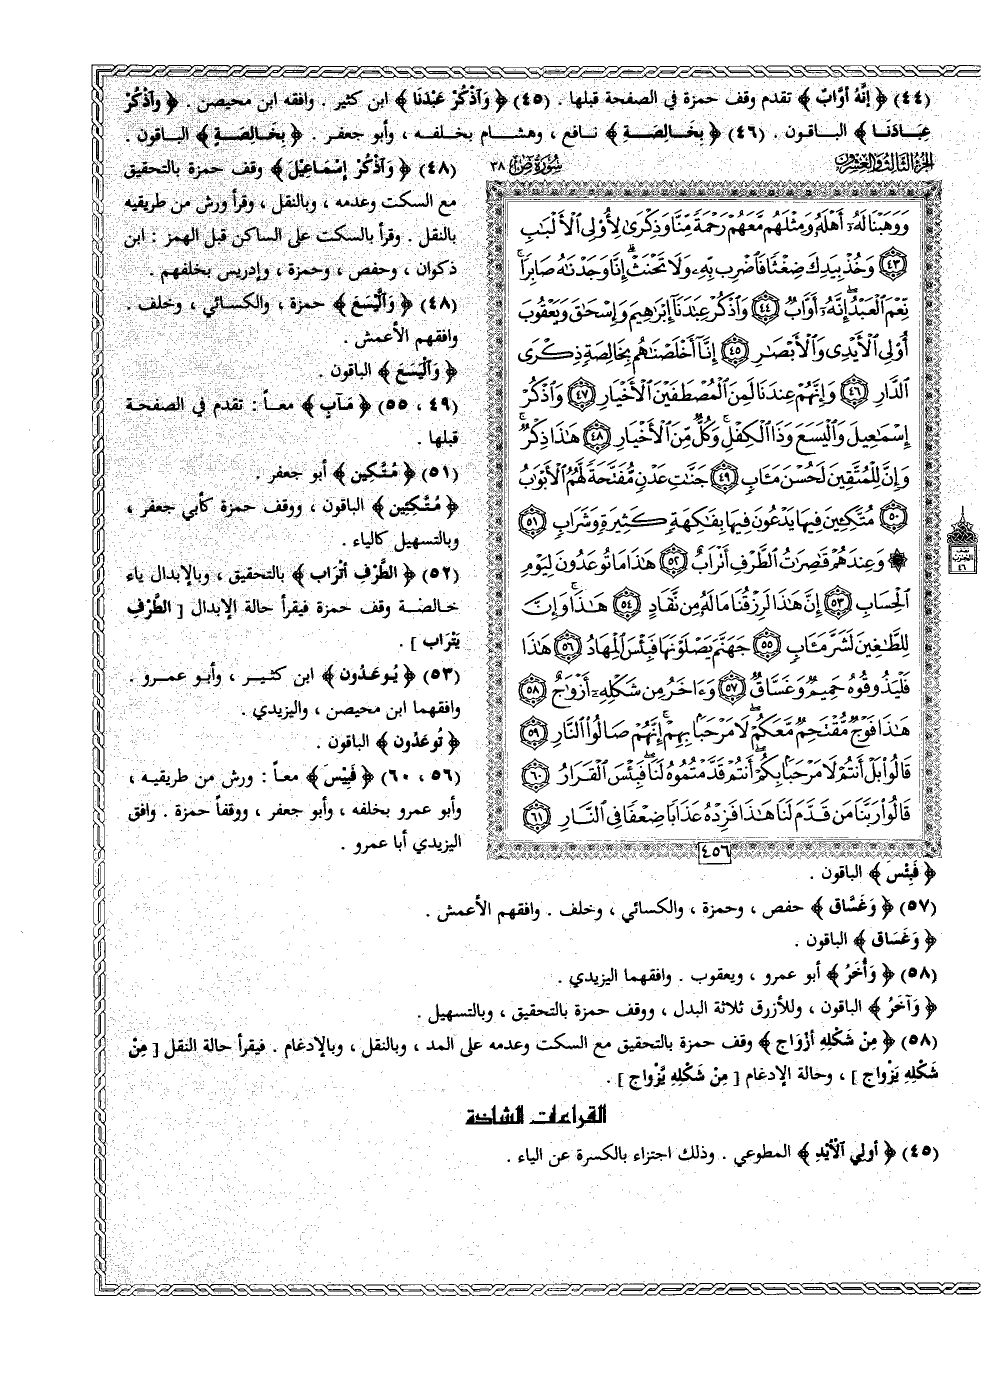 (٤٤) ﴿ إِنَّهُ أوَّابٌ ﴾ تقدم وقف حمزة في الصفحة قبلها . (٤٥) ﴿ وَآذْكُرْ عَبْدَنَا ﴾ ابن كثير . وافقه ابن محيصن . ﴿ وآذْكُرْ
عِبَادَنَا ﴾ الباقون . (٤٦) ﴿ بِخَالِصَةِ ﴾ نافع ، وهشام بخلفه ، وأبو جعفر . ﴿ بِخَالِصَةٍ ﴾ الباقون .
الجزء الثالث والعشرون
سورة ص ٣٨
وَوَهَبْنَا لَهُۥٓ أَهْلَهُۥ وَمِثْلَهُم مَّعَهُمْ رَحْمَةً مِّنَّا وَذِكْرَىٰ لِأُو۟لِى ٱلْأَلْبَٰبِ
٤٣ وَخُذْ بِيَدِكَ ضِغْثًا فَٱضْرِب بِّهِۦ وَلَا تَحْنَثْ ۗ إِنَّا وَجَدْنَٰهُ صَابِرًا ۚ
نِّعْمَ ٱلْعَبْدُ ۖ إِنَّهُۥٓ أَوَّابٌ ٤٤ وَٱذْكُرْ عِبَٰدَنَآ إِبْرَٰهِيمَ وَإِسْحَٰقَ وَيَعْقُوبَ
أُو۟لِى ٱلْأَيْدِى وَٱلْأَبْصَٰرِ ٤٥ إِنَّآ أَخْلَصْنَٰهُم بِخَالِصَةٍ ذِكْرَى
ٱلدَّارِ ٤٦ وَإِنَّهُمْ عِندَنَا لَمِنَ ٱلْمُصْطَفَيْنَ ٱلْأَخْيَارِ ٤٧ وَٱذْكُرْ
إِسْمَٰعِيلَ وَٱلْيَسَعَ وَذَا ٱلْكِفْلِ ۖ وَكُلٌّ مِّنَ ٱلْأَخْيَارِ ٤٨ هَٰذَا ذِكْرٌ ۚ
وَإِنَّ لِلْمُتَّقِينَ لَحُسْنَ مَـَٔابٍ ٤٩ جَنَّٰتِ عَدْنٍ مُّفَتَّحَةً لَّهُمُ ٱلْأَبْوَٰبُ
٥٠ مُتَّكِـِٔينَ فِيهَا يَدْعُونَ فِيهَا بِفَٰكِهَةٍ كَثِيرَةٍ وَشَرَابٍ ٥١
۞ وَعِندَهُمْ قَٰصِرَٰتُ ٱلطَّرْفِ أَتْرَابٌ ٥٢ هَٰذَا مَا تُوعَدُونَ لِيَوْمِ
ٱلْحِسَابِ ٥٣ إِنَّ هَٰذَا لَرِزْقُنَا مَا لَهُۥ مِن نَّفَادٍ ٥٤ هَٰذَا ۚ وَإِنَّ
لِلطَّٰغِينَ لَشَرَّ مَـَٔابٍ ٥٥ جَهَنَّمَ يَصْلَوْنَهَا فَبِئْسَ ٱلْمِهَادُ ٥٦ هَٰذَا
فَلْيَذُوقُوهُ حَمِيمٌ وَغَسَّاقٌ ٥٧ وَءَاخَرُ مِن شَكْلِهِۦٓ أَزْوَٰجٌ ٥٨
هَٰذَا فَوْجٌ مُّقْتَحِمٌ مَّعَكُمْ ۖ لَا مَرْحَبًۢا بِهِمْ ۚ إِنَّهُمْ صَالُوا۟ ٱلنَّارِ ٥٩
قَالُوا۟ بَلْ أَنتُمْ لَا مَرْحَبًۢا بِكُمْ ۖ أَنتُمْ قَدَّمْتُمُوهُ لَنَا ۖ فَبِئْسَ ٱلْقَرَارُ ٦٠
قَالُوا۟ رَبَّنَا مَن قَدَّمَ لَنَا هَٰذَا فَزِدْهُ عَذَابًا ضِعْفًا فِى ٱلنَّارِ ٦١
٤٥٦
نصف
الحزب
٤٦
(٤٨) ﴿ وَآذْكُرْ إِسْمَاعِيْلَ ﴾ وقف حمزة بالتحقيق
مع السكت وعدمه ، وبالنقل ، وقرأ ورش من طريقيه
بالنقل . وقرأ بالسكت على الساكن قبل الهمز : ابن
ذكوان ، وحفص ، وحمزة ، وإدريس بخلفهم .
(٤٨) ﴿ وَٱلَّيْسَعَ ﴾ حمزة ، والكسائي ، وخلف .
وافقهم الأعمش .
﴿ وَٱلْيَسَعَ ﴾ الباقون .
(٤٩ ، ٥٥) ﴿ مَـآبٍ ﴾ معاً : تقدم في الصفحة
قبلها .
(٥١) ﴿ مُتَّكِين ﴾ أبو جعفر .
﴿ مُتَّكِئِين ﴾ الباقون ، ووقف حمزة كأبي جعفر ،
وبالتسهيل كالياء .
(٥٢) ﴿ الطَّرْفِ أتْرَاب ﴾ بالتحقيق ، وبالإبدال ياء
خالصة وقف حمزة فيقرأ حالة الإبدال [ الطَّرْفِ
يَتْرَاب ] .
(٥٣) ﴿ يُوعَدُون ﴾ ابن كثير ، وأبو عمرو .
وافقهما ابن محيصن ، واليزيدي .
﴿ تُوعَدُون ﴾ الباقون .
(٥٦ ، ٦٠) ﴿ فَبِيْسَ ﴾ معاً : ورش من طريقيه ،
وأبو عمرو بخلفه ، وأبو جعفر ، ووقفاً حمزة . وافق
اليزيدي أبا عمرو .
﴿ فَبِئْسَ ﴾ الباقون .
(٥٧) ﴿ وَغَسَّاق ﴾ حفص ، وحمزة ، والكسائي ، وخلف . وافقهم الأعمش .
﴿ وَغَسَاق ﴾ الباقون .
(٥٨) ﴿ وَأُخَرُ ﴾ أبو عمرو ، ويعقوب . وافقهما اليزيدي .
﴿ وَآخَرُ ﴾ الباقون ، وللأزرق ثلاثة البدل ، ووقف حمزة بالتحقيق ، وبالتسهيل .
(٥٨) ﴿ مِنْ شَكْلِهِ أزْوَاج ﴾ وقف حمزة بالتحقيق مع السكت وعدمه على المد ، وبالنقل ، وبالإدغام . فيقرأ حالة النقل [ مِنْ
شَكْلِهِ يَزْواج ] ، وحالة الإدغام [ مِنْ شَكْلِهِ يَّزْواج ] .
القراءات الشاذة
(٤٥) ﴿ أولِي ٱلْأَيْدِ ﴾ المطوعي . وذلك اجتزاء بالكسرة عن الياء .